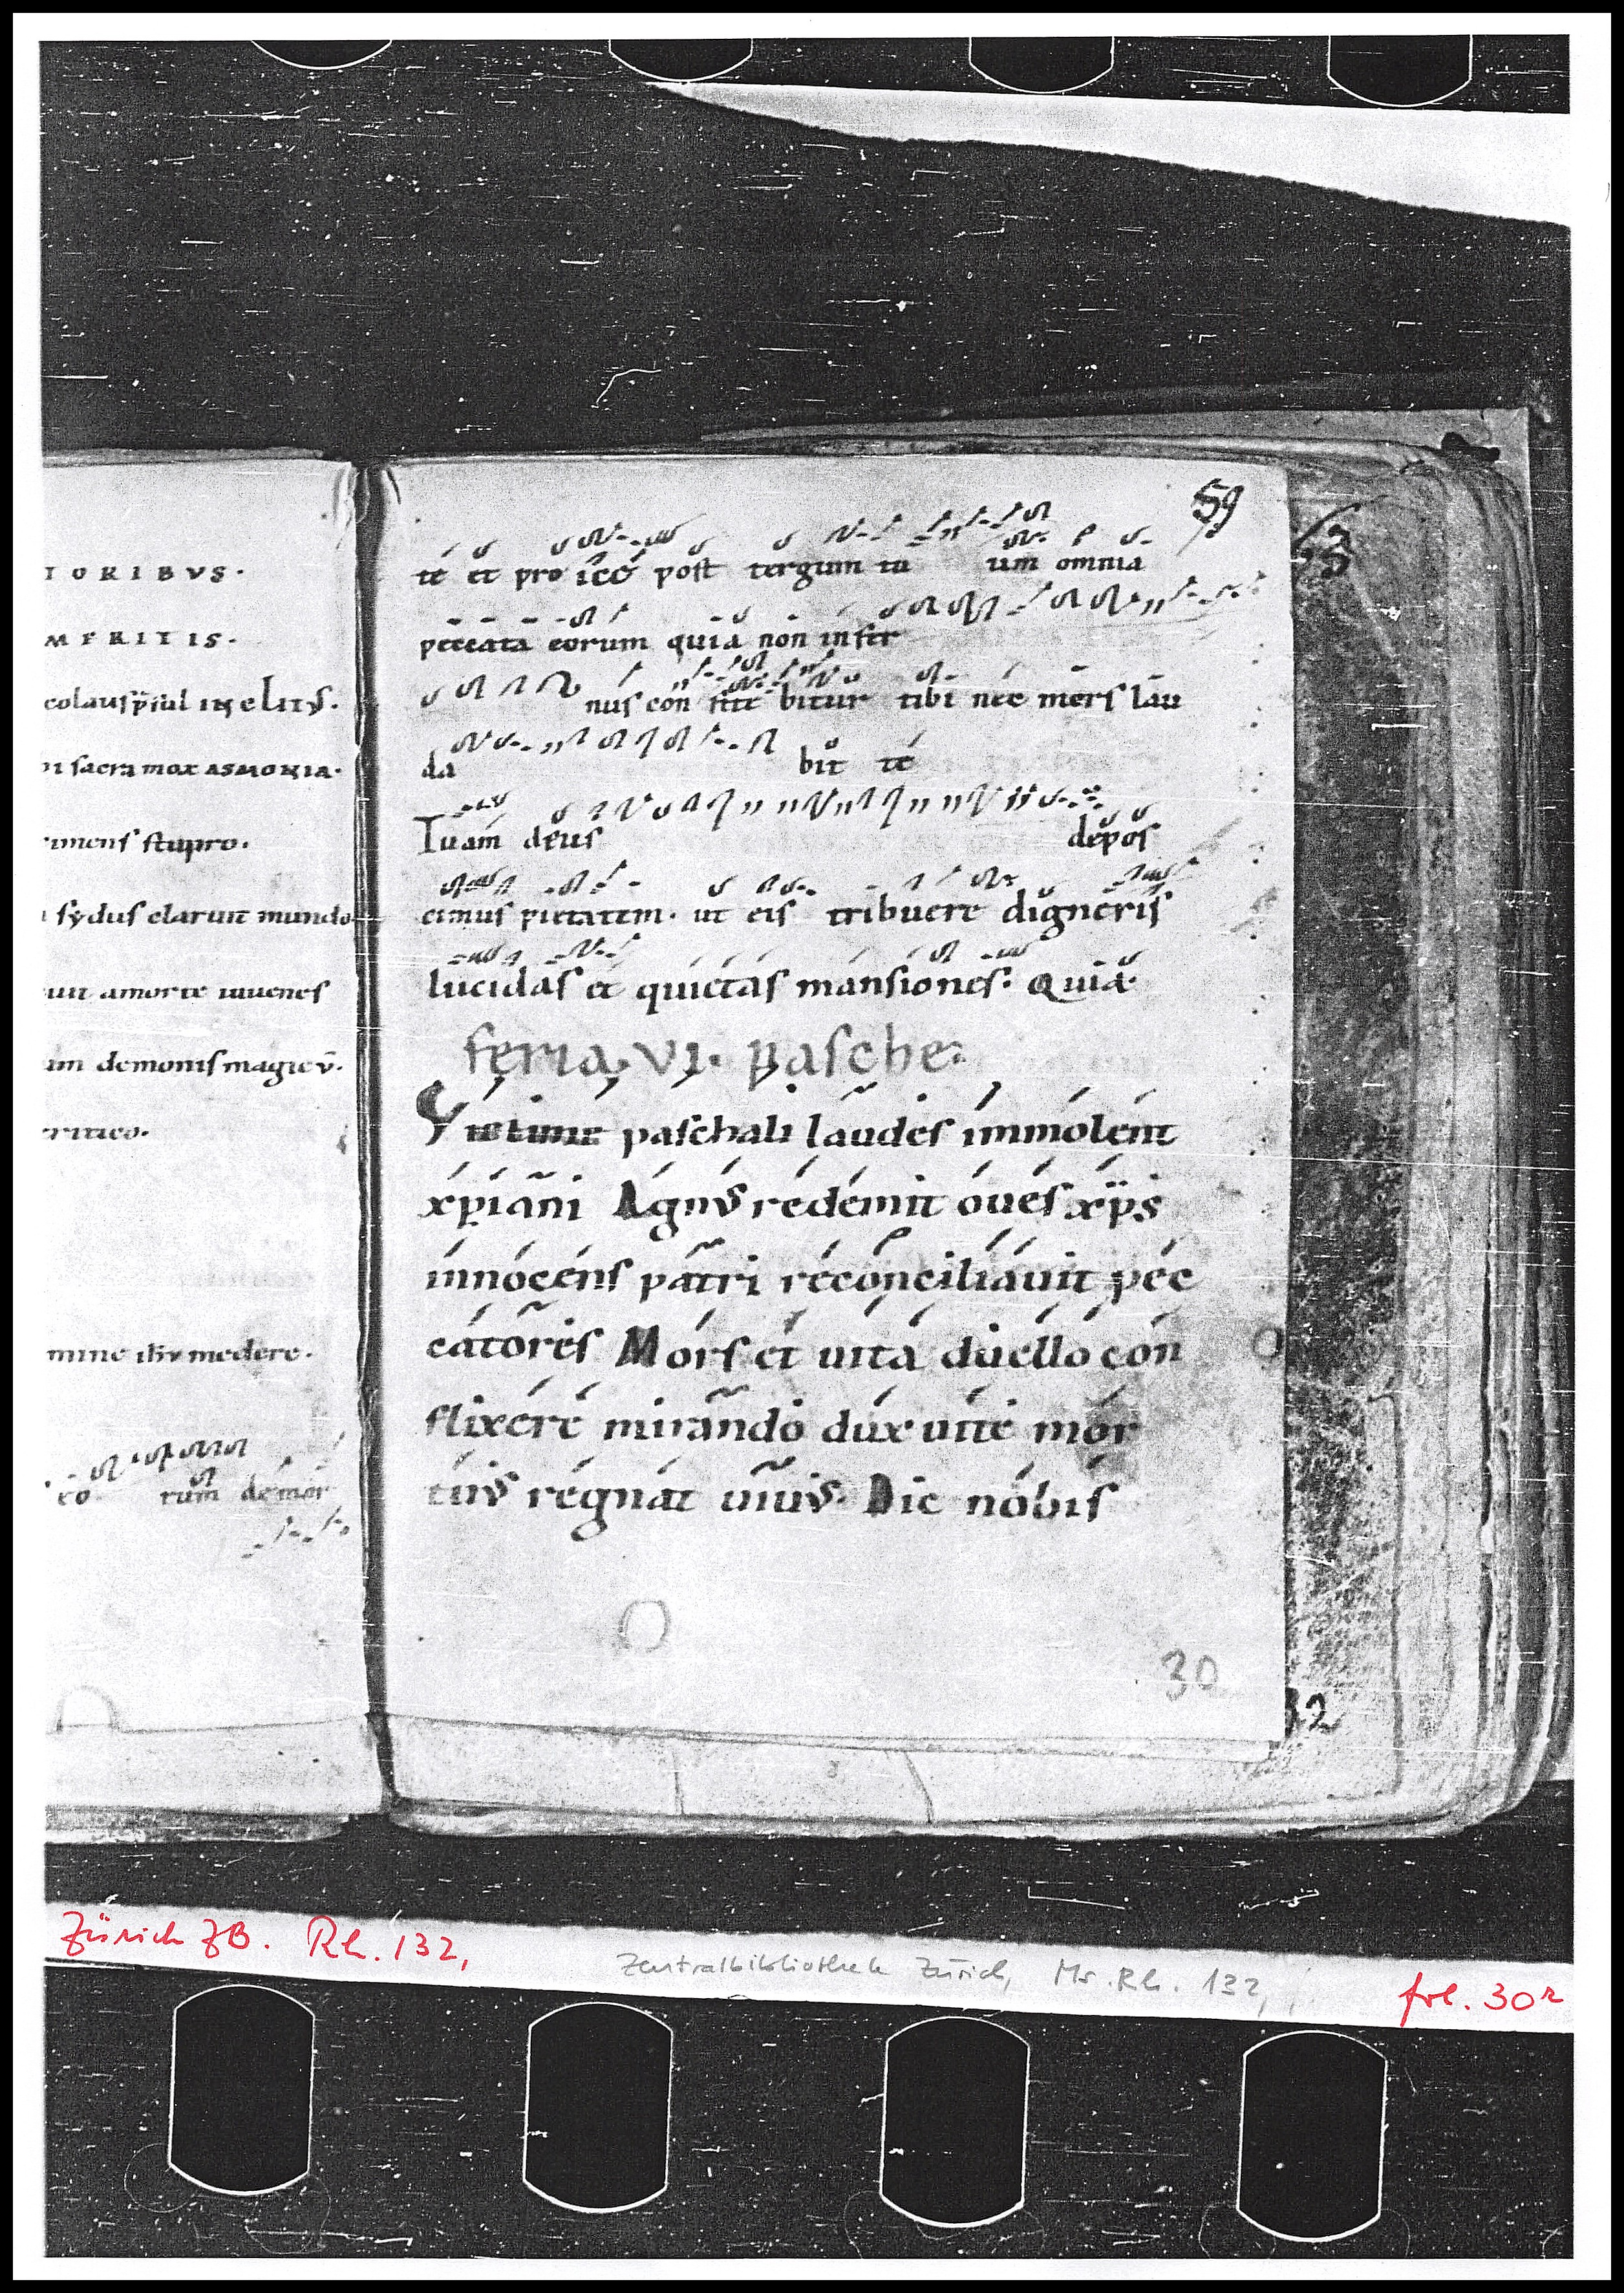 TORIBVS·
MERITIS·
colaus p̄sul INCLITꝰ·
sacra mox ASMONIA·
stupro·
sydus clarum mundo
amorte iuuenes
demonis magicū·
medere·
eo rum de mor
59
te et pro iecé post tergum tu um omnia
peccata eorum quia non infer
nus con fite bitur tibi nec mors lau
da bit te
Tuam deus depos
cimus pietatem· ut eis tribuere digneris
lucidas et quietas mansiones· Quia·
feria·VI· pasche:
Victime paschali laudes immolent
xpiani Agnꝰ redemit oues xp̄s
innocens patri reconciliauit pec
catores Mors et uita duello con
flixere mirando dux uite mor
tuꝰ regnat uiuꝰ· Dic nobis
30
63
32
Zürich ZB. Rh. 132,
Zentralbibliothek Zürich, Ms. Rh. 132,
fol. 30r